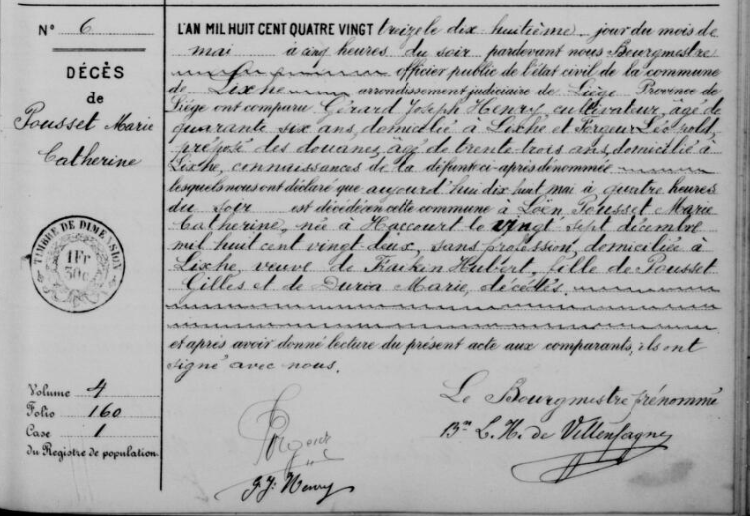 N° 6
DÉCÈS
de
Pousset Marie
Catherine
TIMBRE DE DIMENSION
1 Fr
30c
Volume 4
Folio 160
Case 1
du Registre de population
L'AN MIL HUIT CENT QUATRE VINGT treize le dix huitième jour du mois de
mai à cinq heures du soir pardevant nous Bourgmestre
officier public de l'état civil de la commune
de Lixhe arrondissement judiciaire de Liège Province de
Liége ont comparu Gérard Joseph Henry, cultivateur, âgé de
quarante six ans, domicilié à Lixhe et Forgeur Léopold,
préposé des douanes, âgé de trente trois ans, domicilié à
Lixhe, connaissances de la défunte ci-après dénommée
lesquels nous ont déclaré que aujourd'hui dix huit mai à quatre heures
du soir est décédée en cette commune à Loën Pousset Marie
Catherine, née à Haccourt le vingt sept décembre
mil huit cent vingt deux, sans profession, domiciliée à
Lixhe, veuve de Fraiken Hubert, fille de Pousset
Gilles et de Marie, décédés.
et après avoir donné lecture du présent acte aux comparants, ils ont
signé avec nous.
Le Bourgmestre prénommé
Bon L. H. de Villenfagne
Forgeur
G. J. Henry